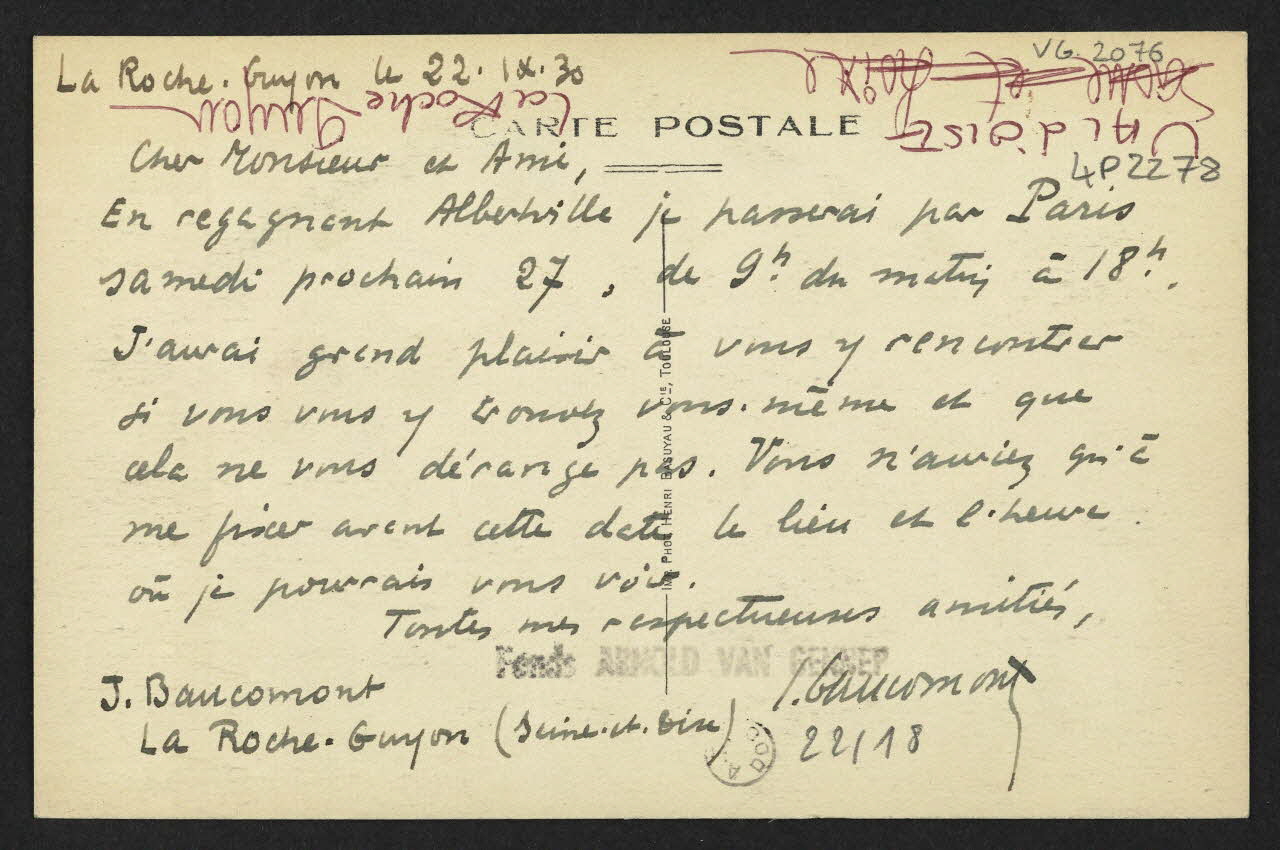 VG. 2076
La Roche-Guyon le 22.IX.30
Seine et Oise
La Roche Guyon
VAL d'OISE
CARTE POSTALE
4P2278
Cher Monsieur et Ami,
En regagnant Albertville je passerai par Paris
samedi prochain 27, de 9h du matin à 18h.
J'aurai grand plaisir à vous y rencontrer
si vous vous y trouvez vous-même et que
cela ne vous dérange pas. Vous n'auriez qu'à
me fixer avant cette date le lieu et l'heure
où je pourrais vous voir.
Toutes mes respectueuses amitiés,
Fonds ARNOLD VAN GENNEP
J. Baucomont
J. Baucomont
La Roche-Guyon (Seine-et-Oise)
22/18
IMP. PHOT. HENRI BASUYAU & CIE, TOULOUSE